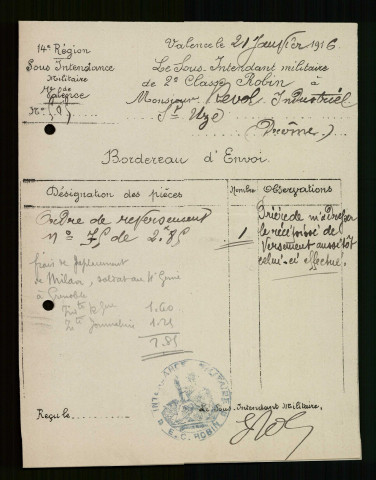 14e Région
Sous Intendance
Militaire
de
Valence
No
Valence le 21 Janvier 1916
Le Sous-Intendant militaire
de 2e Classe Robin à
Monsieur Revol Industriel
St Uze
(Drôme)
Bordereau d'Envoi.
Désignation des pièces
Nombre
Observations
Ordre de reversement
no 75 de 2.85
1
Prière de m'adresser
le récépissé de
versement aussitôt
celui-ci effectué.
frais de déplacement
de Milan, soldat au 4e Génie
à Grenoble
1.60
Ite Journalière 1.25
2.85
Reçu le
Le Sous-Intendant Militaire,
INTENDANCE MILITAIRE
E.C. ROBIN